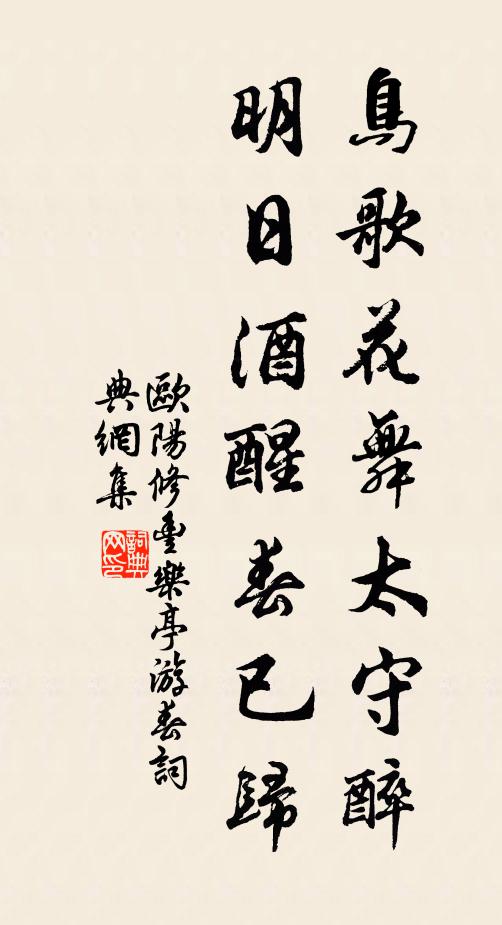 鳥歌花舞太守醉
明日酒醒春已歸
歐陽修豐樂亭游春詞
典網集
詞典
网印